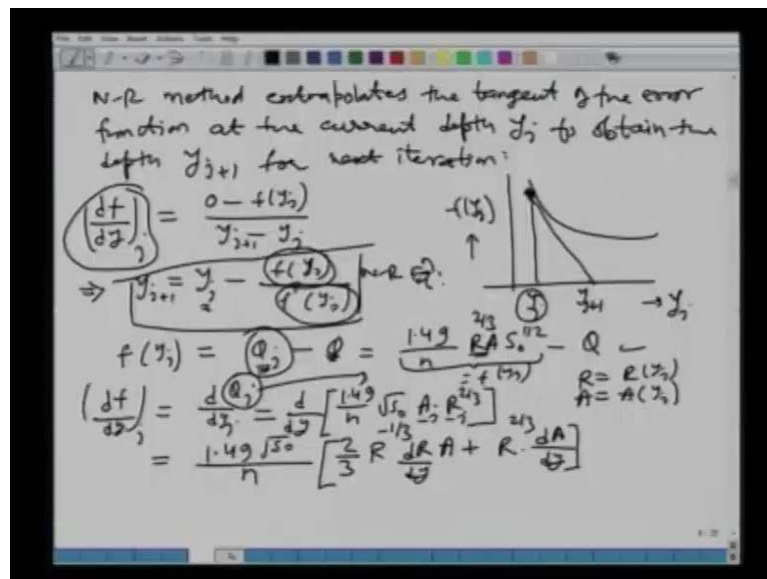 N-R method extrapolates the tangent of the error
function at the current depth y_j to obtain the
depth y_{j+1} for next iteration:
(df/dy)_j = (0 - f(y_j)) / (y_{j+1} - y_j)
⇒ y_{j+1} = y_j - f(y_j) / f'(y_j) N-R Eq.
f(y_j) ↑
y_j y_{j+1} → y_j
f(y_j) = Q_j - Q = (1.49/n) R^{2/3} A S_0^{1/2} - Q
= f(y_j)
R = R(y_j)
A = A(y_j)
(df/dy)_j = dQ_j/dy_j = d/dy [ (1.49/n) √S_0 A_j R_j^{2/3} ]
= (1.49 √S_0 / n) [ (2/3) R^{-1/3} (dR/dy) A + R^{2/3} · dA/dy ]